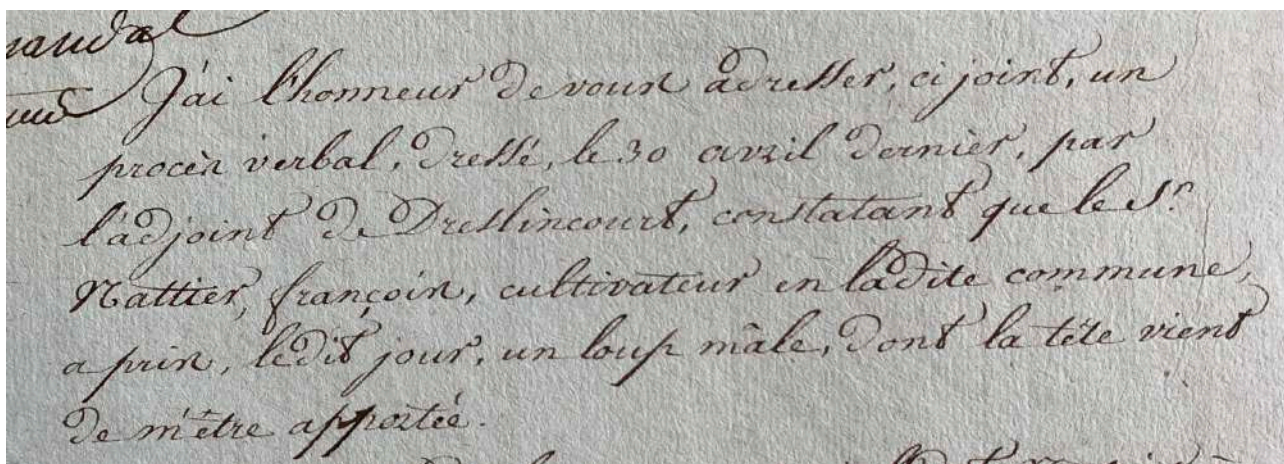 J'ai l'honneur de vous adresser, ci joint, un
procès verbal, dressé, le 30 avril dernier, par
l'adjoint de Dreslincourt, constatant que le Sr.
Nattier, françois, cultivateur en ladite commune,
a pris, ledit jour, un loup mâle, dont la tête vient
de m'être apportée.